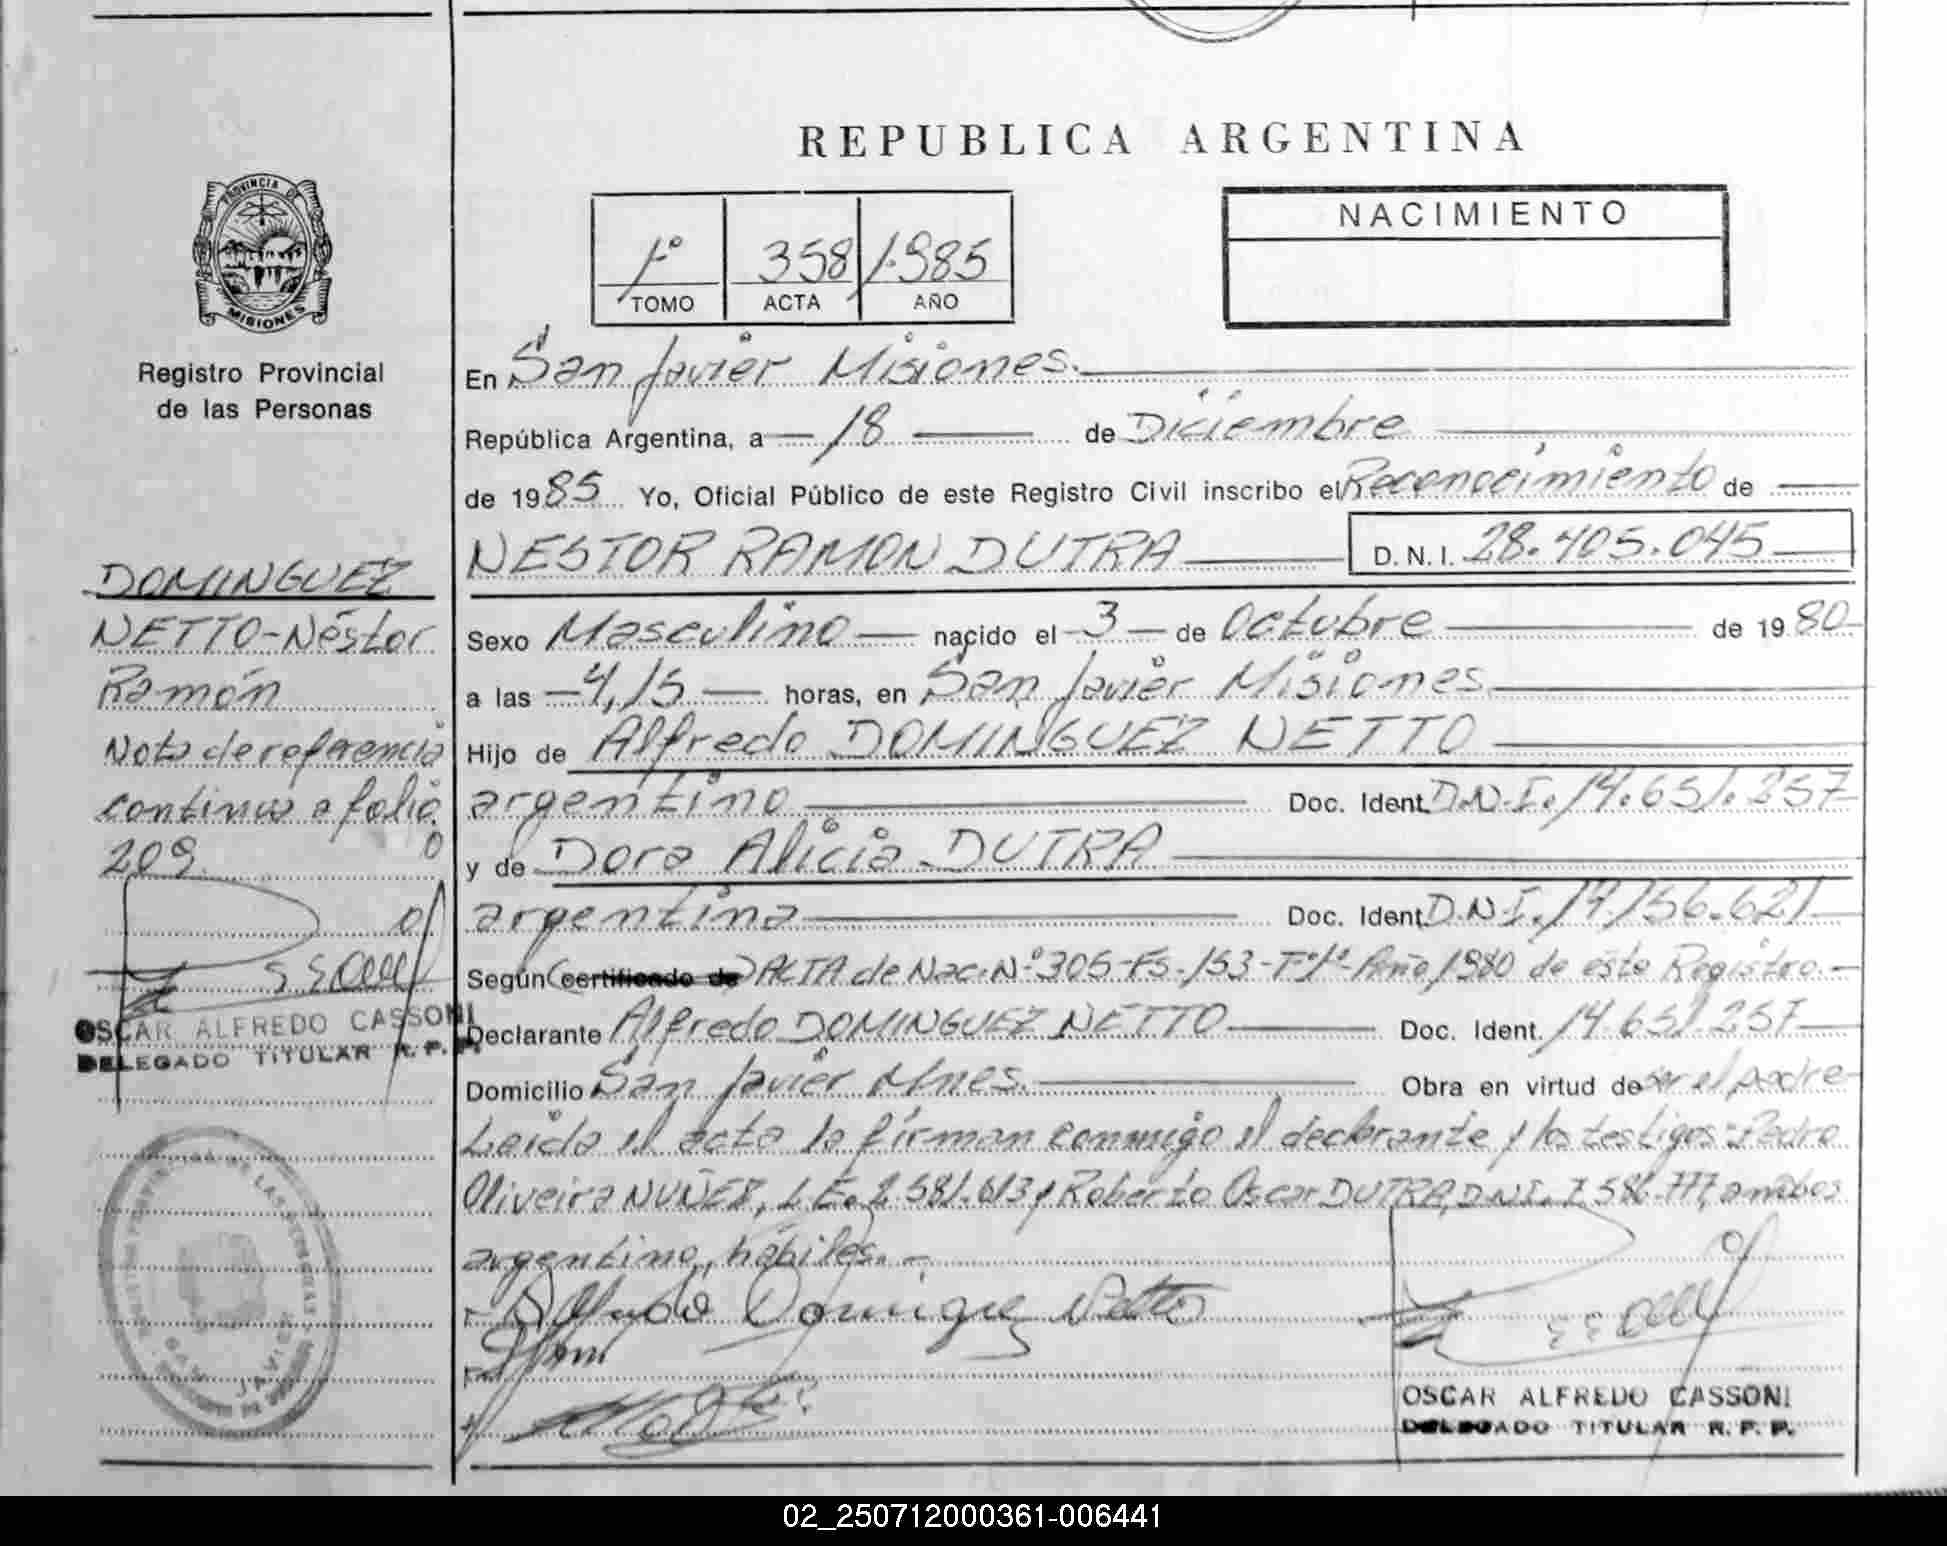 REPUBLICA ARGENTINA
PROVINCIA DE
MISIONES
Registro Provincial
de las Personas
1º 358 1.985
TOMO ACTA AÑO
NACIMIENTO
En San Javier Misiones.
República Argentina, a 18 de Diciembre
de 1985 Yo, Oficial Público de este Registro Civil inscribo el Reconocimiento de
NESTOR RAMON DUTRA D.N.I. 28.405.045
Sexo Masculino nacido el 3 de Octubre de 1980
a las 4,15 horas, en San Javier Misiones
Hijo de Alfredo DOMINGUEZ NETTO
argentino Doc. Ident. D.N.I. 14.651.257
y de Dora Alicia DUTRA
argentina Doc. Ident. D.N.I. 14.156.621
Según (certificado de) ACTA de Nac. Nº 305-Fs.-153-Tº1º-Año 1980 de este Registro.-
Declarante Alfredo DOMINGUEZ NETTO Doc. Ident. 14.651.257
Domicilio San Javier Mnes. Obra en virtud de ser el padre
Leida el acta la firman conmigo el declarante y los testigos: Pedro
Oliveira NUÑEZ, L.E. 2.581.613 y Roberto Oscar DUTRA, D.N.I. 7.586.777, ambos
argentino, hábiles.-
Alfredo Dominguez Netto
OSCAR ALFREDO CASSONI
DELEGADO TITULAR R. P. P.
DOMINGUEZ
NETTO-Néstor
Ramón
Nota de referencia
continua a folio
209
OSCAR ALFREDO CASSONI
DELEGADO TITULAR R. P. P.
DE LAS PERSONAS
SAN JAVIER
02_250712000361-006441